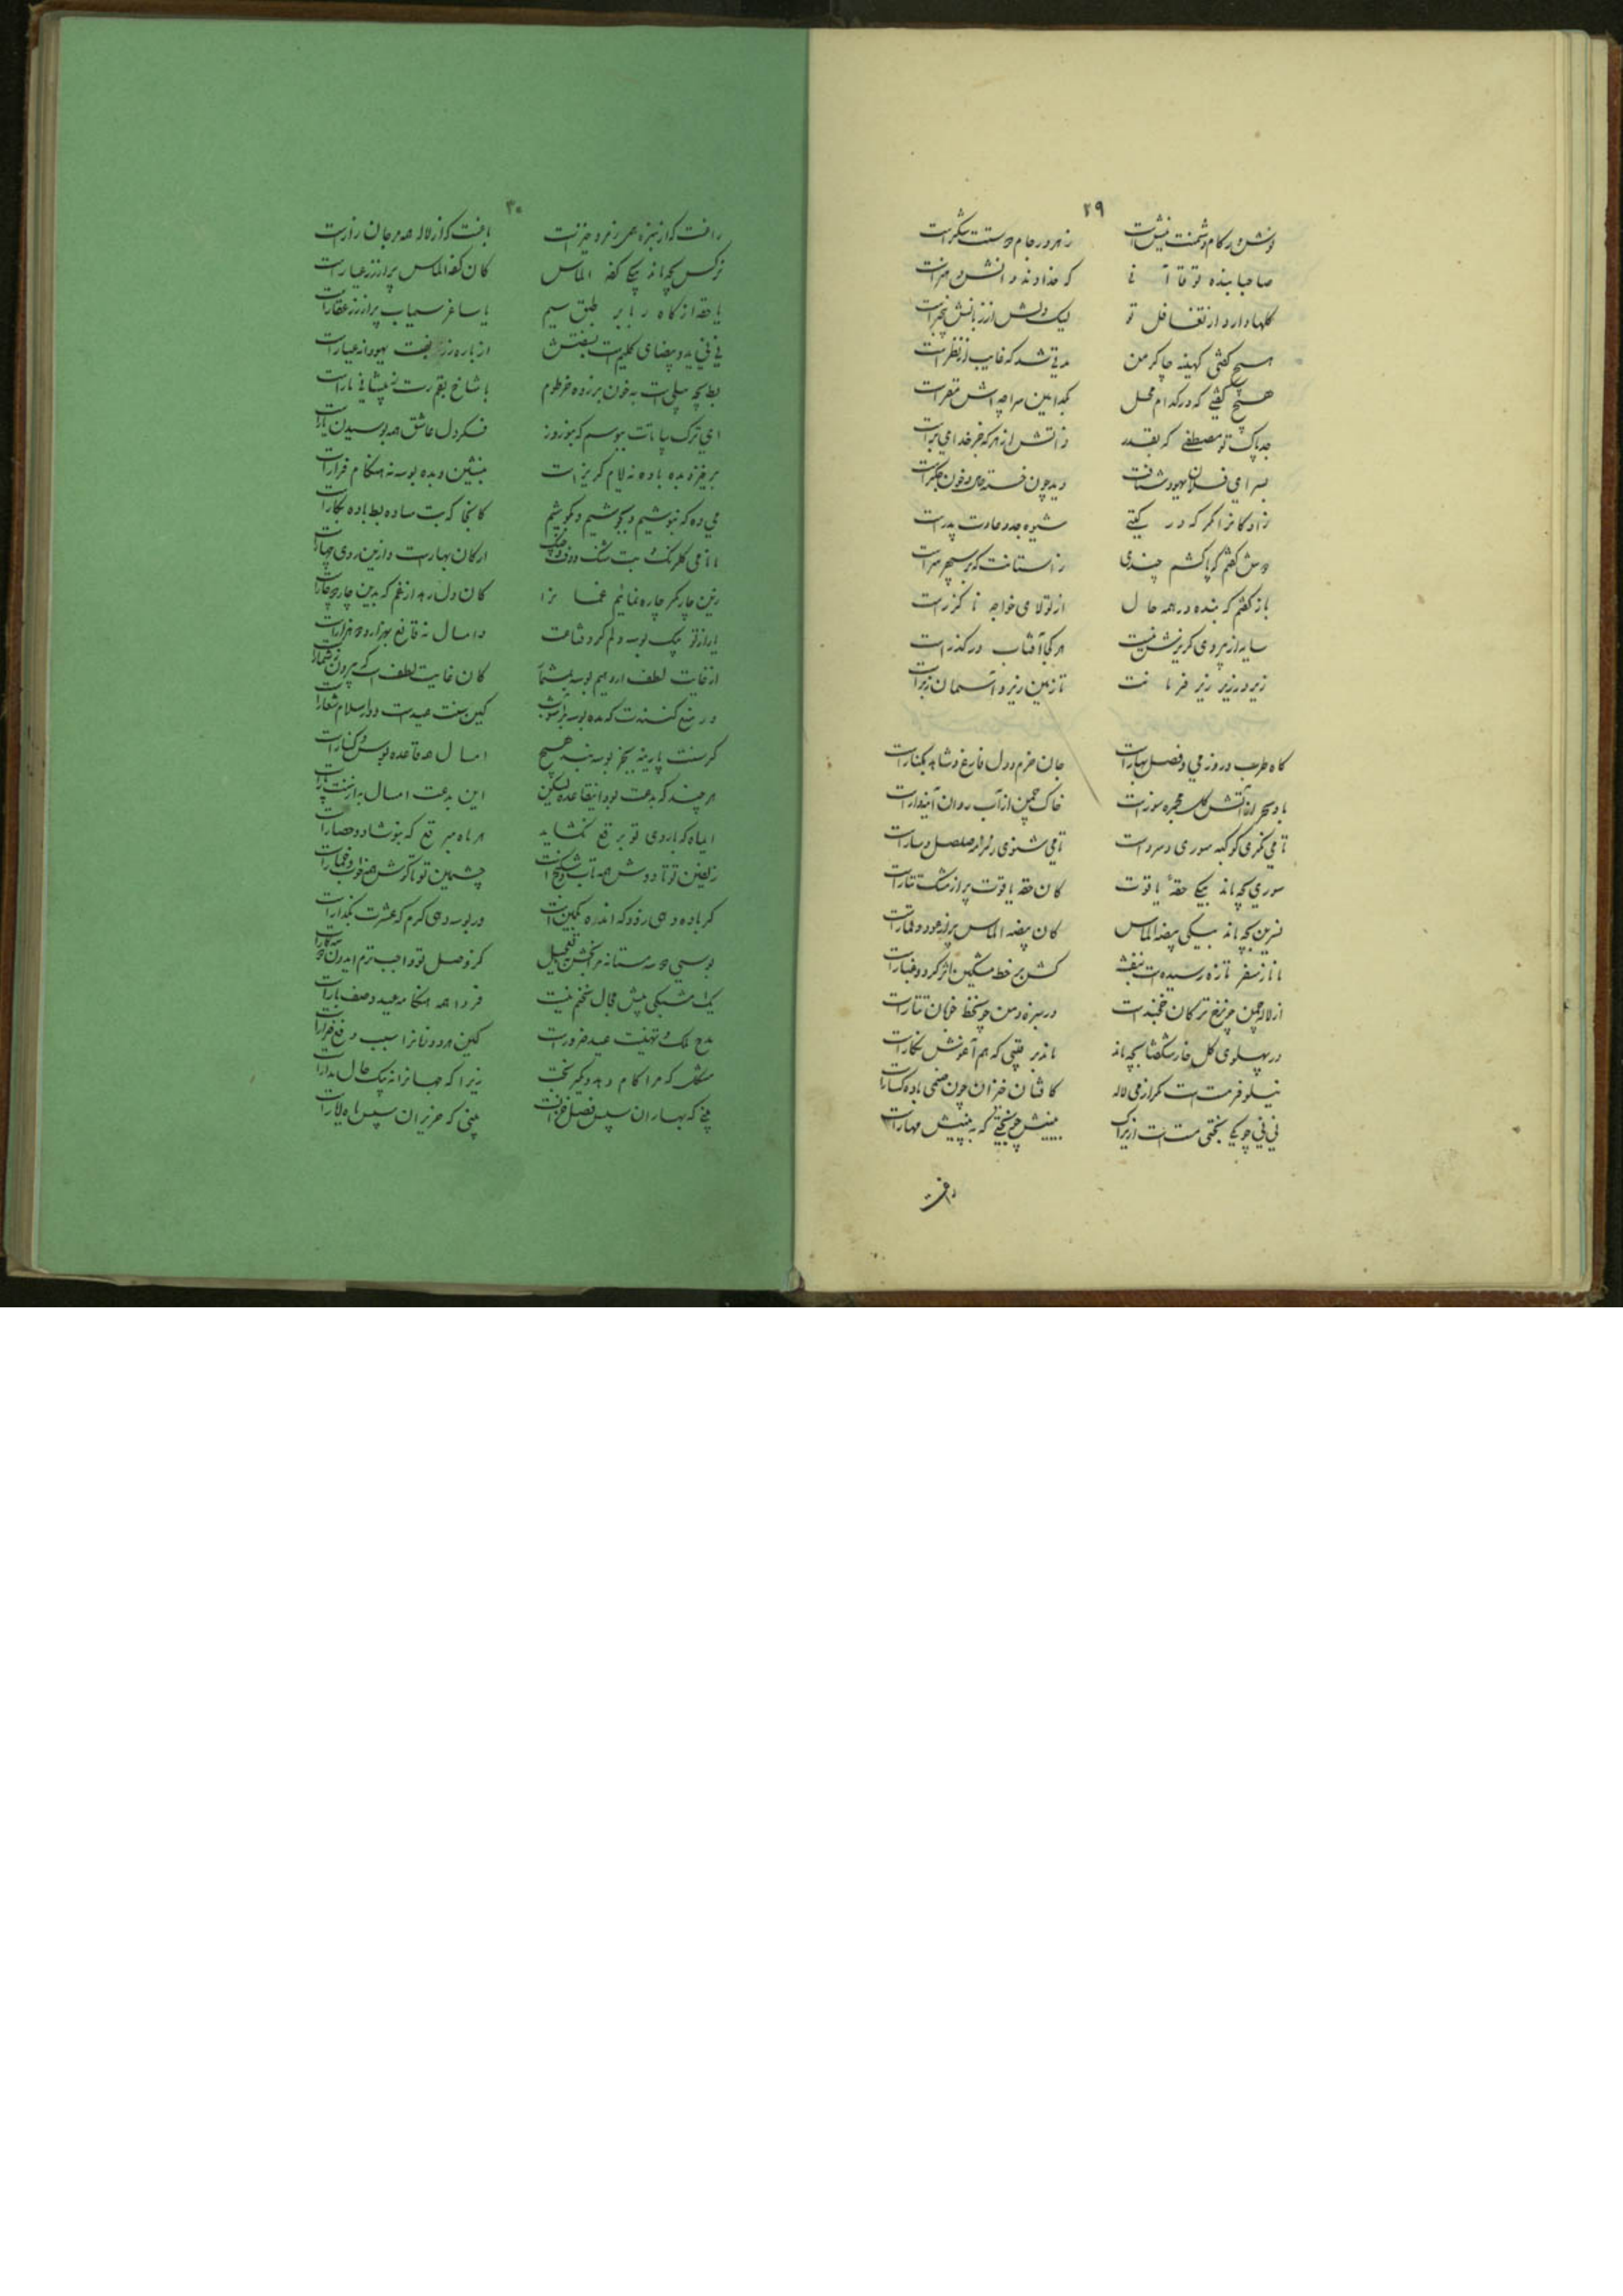 ۲۹
نوش در کام دشمنت نیش است زهر در جام دوستت شکر است
صاحبا بنده تو قاآنی که خداوند دانش و هنر است
گلها دارد از تغافل تو لیک دلش از زبانش بیخبر است
هیچ گفتی کهینه چاکر من مدتی شد که غایب از نظر است
هیچ گفتی که در کدام محل بکدامین سراچه اش مقر است
جد پاک تو مصطفی که بقدر ذاتش از هر که جز خدای بر است
بسرای فلان یهود شتافت دید چون خسته جان و خون جگر است
زادگانرا مگر که در گیتی شیوه جد و عادت پدر است
دوش گفتم که پا کشم چندی ز آستانت که بر سپهر سر است
باز گفتم که بنده در همه حال از تولای خواجه ناگزر است
سایه از پیروی گریزش نیست هر کجا آفتاب در گذر است
زیر و زبر زیر فرمانت تا زمین زیر و آسمان زبر است
گاه طرب و روز می و فصل بهار است جان خرم و دل فارغ و شاهد بکنار است
باد سحر از آتش گل مجمره سوز است خاک چمن از آب روان آینه دار است
تا می نگری کوکبه سوری و سرو است تا می شنوی زمزمه صلصل و سار است
سوری بچه ماند بیکی حقه یاقوت کان حقه یاقوت پر از مشک تتار است
نسرین بچه ماند بیکی بیضه الماس کان بیضه الماس پر از عود و قمار است
مانا ز سفر تازه رسیده است بنفشه کش بر خط مشکین اثر گرد و غبار است
از لاله چمن چون رخ ترکان خجند است وز سبزه دمن چون خط خوبان تتار است
در پهلوی گل خار شگفتا بچه ماند ماند برقیبی که هم آغوش نگار است
نیلوفر مست است مگر از می لاله کافتان خیزان چون صنمی باده گسار است
نی نی چو یکی بختی مست است ازیراک بینیش چو بختی که به بینیش مهار است
راغست
۳۰
راغست که از سبزه همی زمرد خیز است باغست که از لاله همه مرجان زار است
نرگس بچه ماند بیکی کفه الماس کان کفه الماس پر از زر عیار است
یا حقه از کاه ربا بر طبق سیم یا ساغر سیماب پر از زر عقار است
نی نی ید و بیضای کلیم است بنفشش از پاره زربفت یهودانه عیار است
بط بچه پیلی است به خون بر زده خرطوم یا شاخ بقم رسته ز پیشانی مار است
ای ترک بپا تات ببوسم که بنوروز فکر دل عاشق همه بوسیدن یار است
برخیز و بده باده نه ایام گریز است بنشین و بده بوسه نه هنگام فرار است
می ده که بنوشیم و بجوشیم و بکوشیم کانجا که بت ساده بط باده بکار است
ما نا می گلرنگ و بت شنگ و دف و چنگ ارکان بهار است و ازین روی چهار است
زین چار مگر چاره نمائیم غما نرا کان دل رهد از غم که بدین چار دچار است
پار از تو بیک بوسه دلم کرد قناعت و امسال نه قانع بهزار و دو هزار است
از غایت لطف ار دهیم بوسه بیشمار کان غایت لطف است که بیرون ز شمار است
ور منع کنندت که مده بوسه برآشوب کین سنت عید است و در اسلام شعار است
گر سنت پارینه بجز بوسه نبد هیچ امسال همه قاعده بوس و کنار است
هر چند که بدعت بود اینقاعده لیکن این بدعت امسال به از سنت پار است
ای ماه که با روی تو برقع نگشاید هر ماه مبرقع که بنوشاد و حصار است
زلفین تو تا دوش همه تاب و شکنج است چشمین تو تا گوش همه خواب و خمار است
گر باده دهی زود که اندوه بکمین است ور بوسه دهی گرم که عشرت بگذار است
بوسی دو سه مستانه مرا بخش بتعجیل کز وصل تو واجبترم ایدون دو سه کار است
یک امشبکی بیش مجال سخنم نیست فردا همه هنگامه عید و صف بار است
مدح ملک و تهنیت عید ضرور است کین هر دو زمانرا سبب دفع ضرار است
مشکل که مرا کام دهد دیگر بخت زیرا که جهانرا نه بیک حال مدار است
بینی که بهاران سپس فصل خزانست بینی که حزیران سپس ماه ایار است